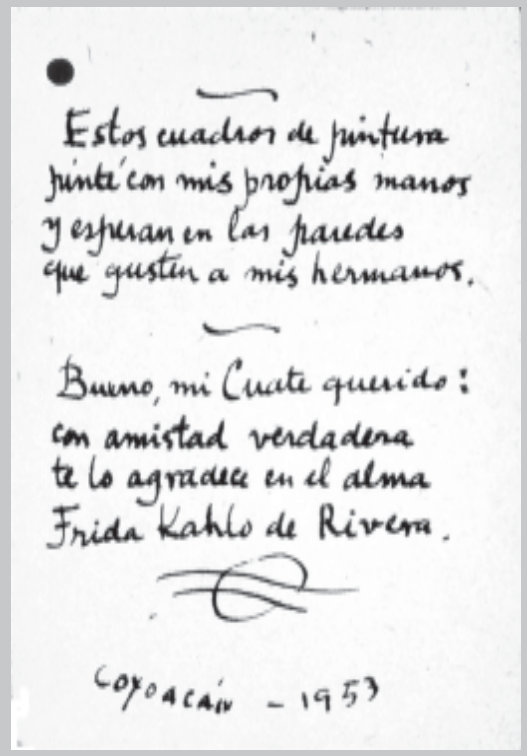 Estos cuadros de pintura
pinté con mis propias manos
y esperan en las paredes
que gusten a mis hermanos.
Bueno, mi Cuate querido:
con amistad verdadera
te lo agradece en el alma
Frida Kahlo de Rivera.
Coyoacán - 1953